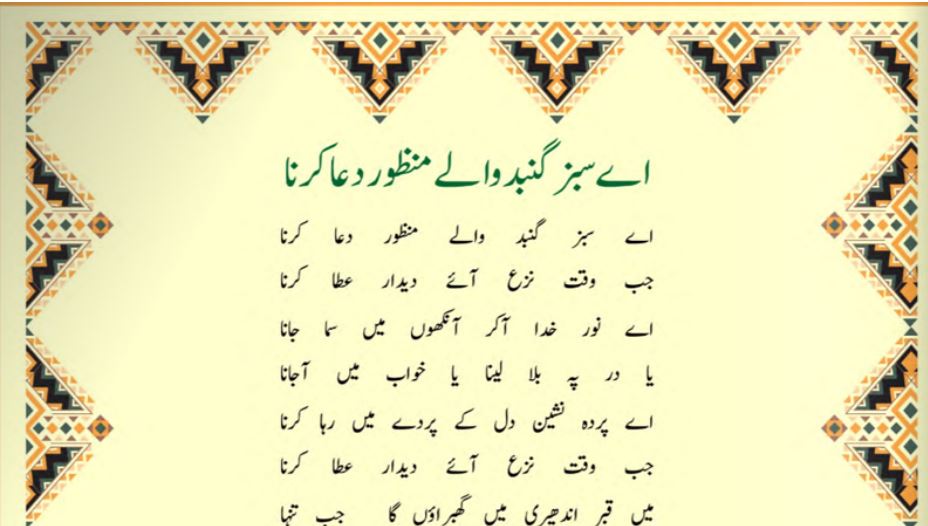 اے سبز گنبد والے منظور دعا کرنا
اے سبز گنبد والے منظور دعا کرنا
جب وقت نزع آئے دیدار عطا کرنا
اے نور خدا آکر آنکھوں میں سما جانا
یا در پہ بلا لینا یا خواب میں آجانا
اے پردہ نشین دل کے پردے میں رہا کرنا
جب وقت نزع آئے دیدار عطا کرنا
میں قبر اندھیری میں گھبراؤں گا جب تنہا